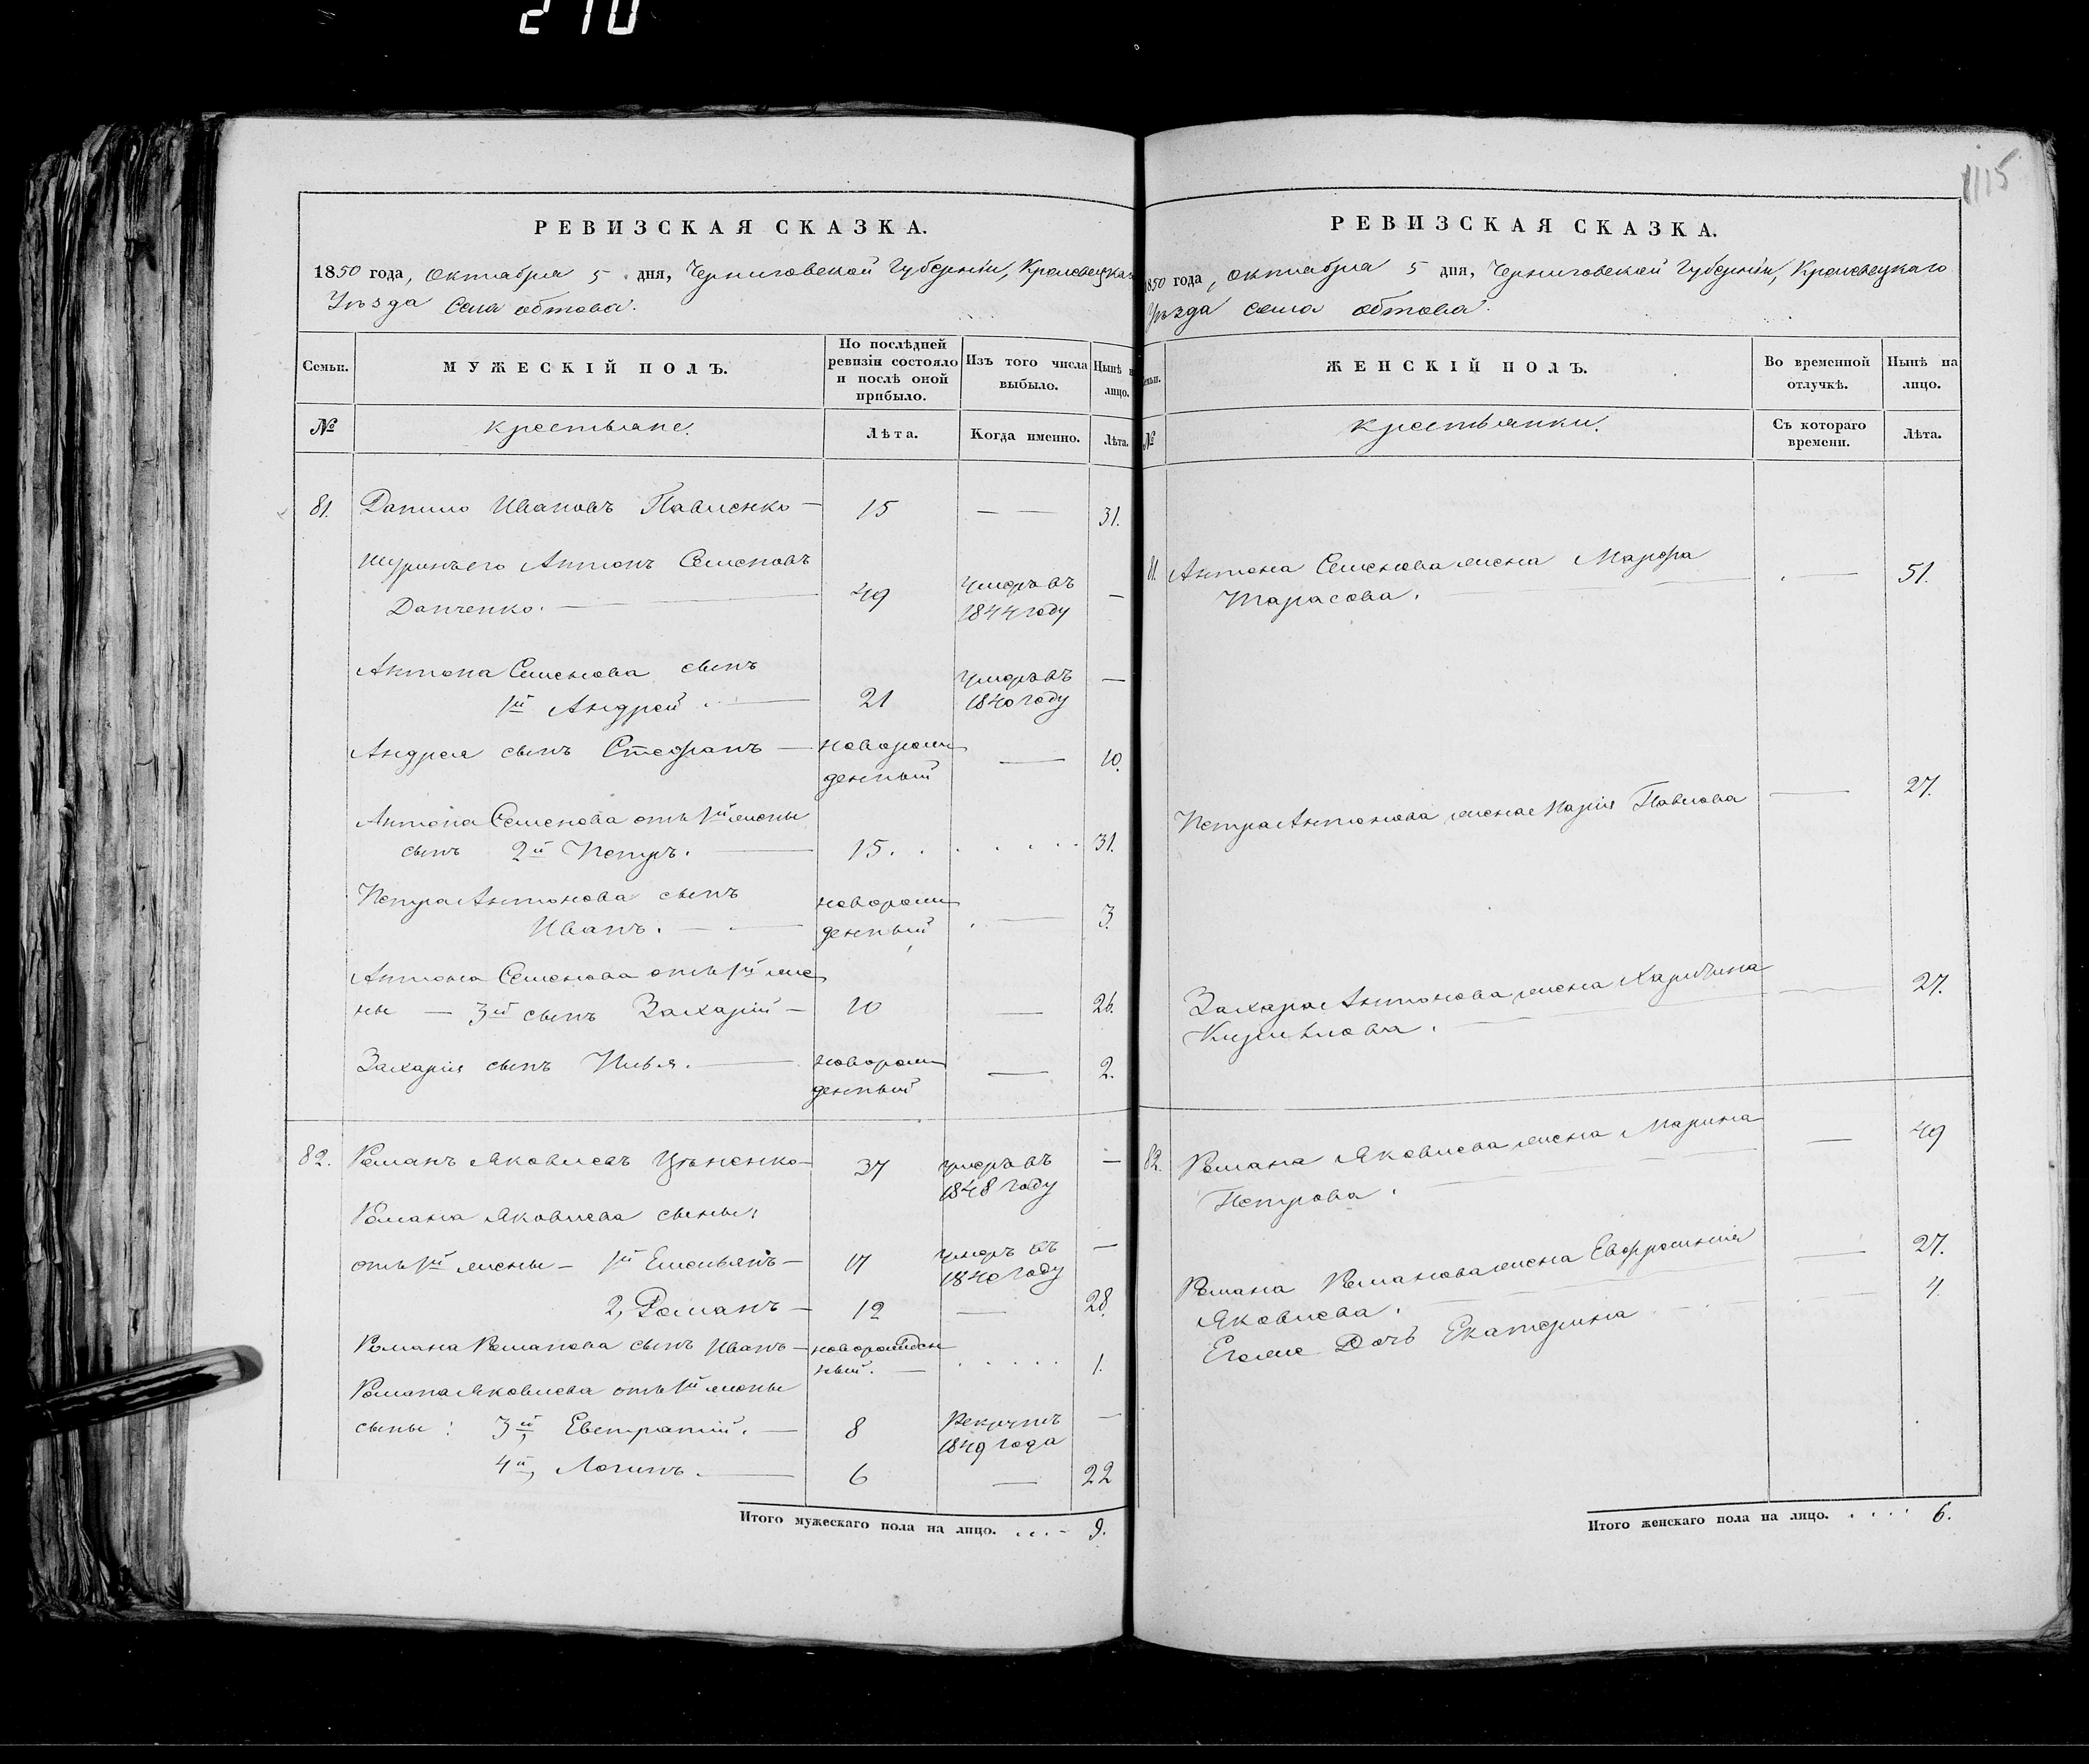 210
1115
РЕВИЗСКАЯ СКАЗКА.
1850 года, Октября 5 дня, Черниговской Губерніи, Кролевецкаго
Уѣзда Села обтова.
Семьи. МУЖЕСКІЙ ПОЛЪ. По послѣдней ревизіи состояло и послѣ оной прибыло. Изъ того числа выбыло. Нынѣ на лицо.
№ крестьяне. Лѣта. Когда именно. Лѣта.
81. Данило Ивановъ Павленко — 15 — — 31.
Шуринъ его Антонъ Семеновъ
Данченко. — 49 Умеръ въ 1844 году —
Антона Семенова сынъ
1й Андрей. — 21 Умеръ въ 1840 году —
Андрея сынъ Стефанъ — новорожденный — 10.
Антона Семенова отъ 1й жены
сынъ 2й Петръ. — 15. . . . . . 31.
Петра Антонова сынъ
Иванъ. — новорожденный — 3.
Антона Семенова отъ 1й же
ны — 3й сынъ Захарій — 10 — 26.
Захарія сынъ Илья. — новорожденный — 2.
82. Романъ Яковлевъ — 37 умеръ въ 1848 году —
Романа Яковлева сыны:
отъ 1й жены — 1й Емельянъ — 17 умеръ въ 1840 году —
2, Романъ — 12 — 28.
Романа Романова сынъ Иванъ — новорожденный. — . . . . . 1.
Романа Яковлева отъ 1й жены
сыны: 3й, Евстратій. — 8 Рекрутъ 1849 года —
4й, Логинъ. — 6 — 22
Итого мужескаго пола на лицо. . . . — 9.
РЕВИЗСКАЯ СКАЗКА.
1850 года, октября 5 дня, Черниговской Губерніи, Кролевецкаго
Уѣзда села обтова.
Семьи. ЖЕНСКІЙ ПОЛЪ. Во временной отлучкѣ. Нынѣ на лицо.
№ крестьянки. Съ котораго времени. Лѣта.
81. Антона Семенова жена Марфа
Тарасова. — 51.
Петра Антонова жена Марія Павлова — 27.
Захара Антонова жена Харитина
Кирилова. — 27.
82. Романа Яковлева жена Марина
Петрова. — 49
Романа Романова жена Евфросинія
Яковлева. — 27.
Егоже Дочь Екатерина — 4.
Итого женскаго пола на лицо. . . . . 6.